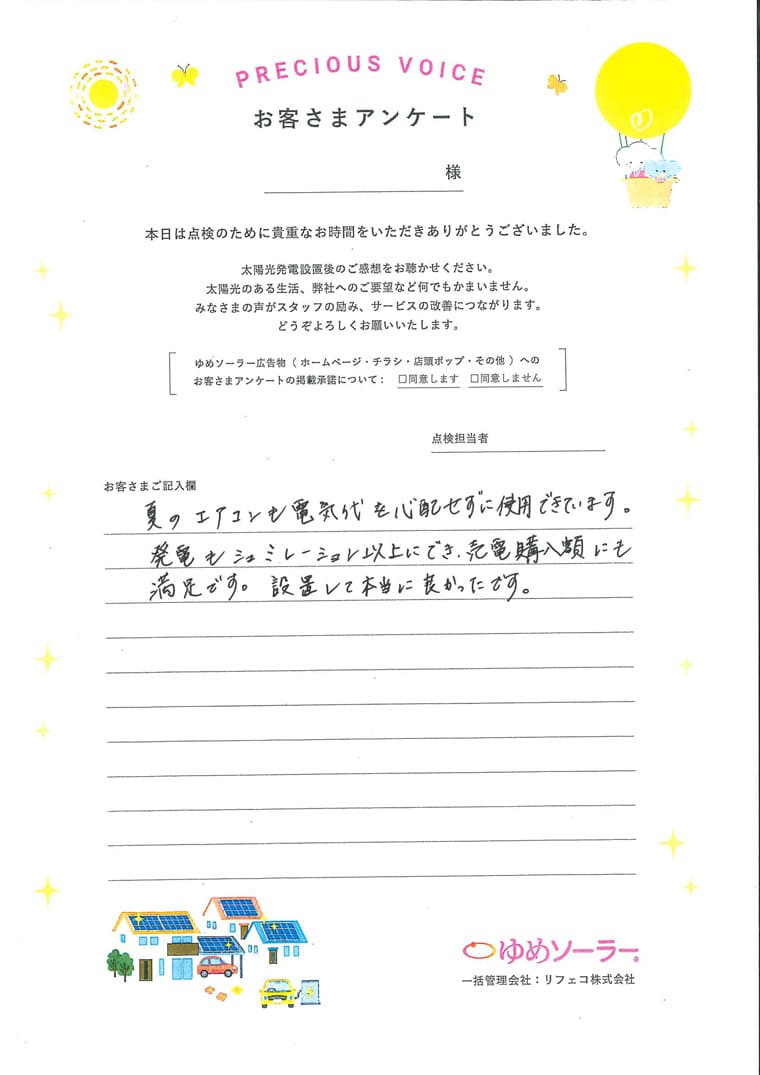 PRECIOUS VOICE
お客さまアンケート
様
本日は点検のために貴重なお時間をいただきありがとうございました。
太陽光発電設置後のご感想をお聴かせください。
太陽光のある生活、弊社へのご要望など何でもかまいません。
みなさまの声がスタッフの励み、サービスの改善につながります。
どうぞよろしくお願いいたします。
ゆめソーラー広告物（ホームページ・チラシ・店頭ポップ・その他）への
お客さまアンケートの掲載承諾について： □同意します □同意しません
点検担当者
お客さまご記入欄
夏のエアコンも電気代を心配せずに使用できています。
発電もシュミレーション以上にでき、売電購入額にも
満足です。設置して本当に良かったです。
ゆめソーラー®
一括管理会社：リフェコ株式会社